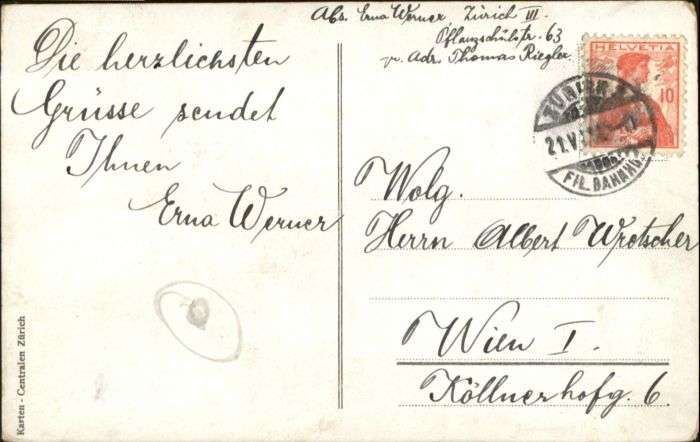 Abs. Erna Werner Zürich III.
Pflanzschulstr. 63
Adr. Thomas Riegler
Die herzlichsten
Grüsse sendet
Ihnen
Erna Werner
HELVETIA
10
ZÜRICH
21.V.
FIL. BAHNH.
Wolg.
Herrn Albert Wrotscher
Wien I.
Köllnerhofg. 6.
Karten - Centralen Zürich